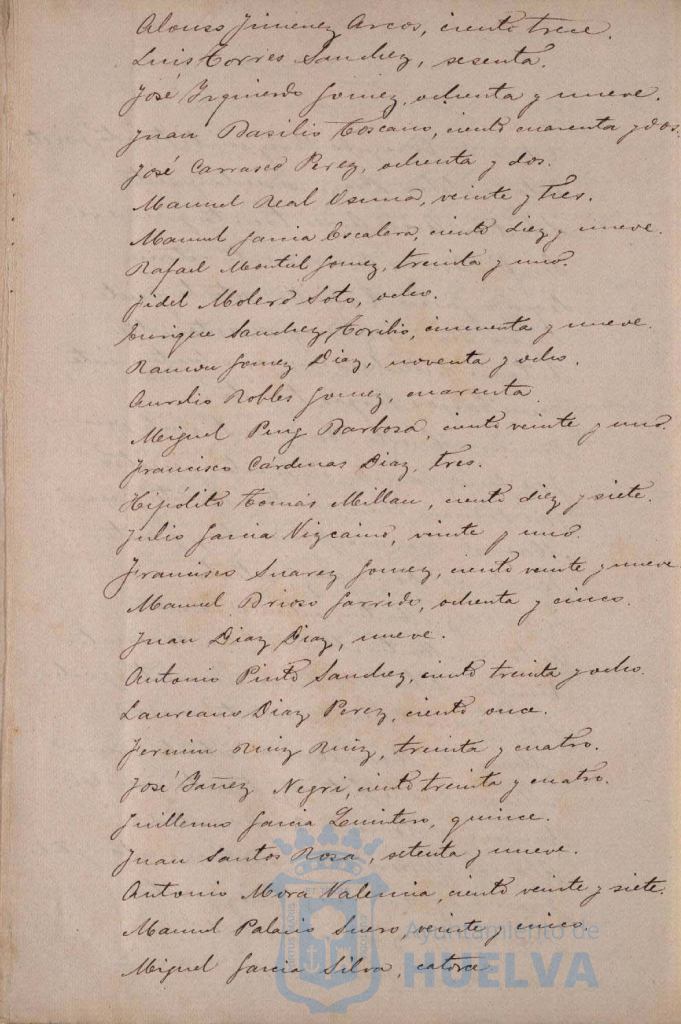 Alonso Jimenez Arcos, ciento trece.
Luis Torres Sanchez, sesenta.
José Izquierdo Gomez, ochenta y nueve.
Juan Basilio Toscano, ciento cuarenta y dos.
José Carrasco Perez, ochenta y dos.
Manuel Real Osuna, veinte y tres.
Manuel Garcia Escalera, ciento diez y nueve.
Rafael Montiel Gomez, treinta y uno.
Fidel Molero Soto, ocho.
Enrique Sanchez Toribio, cincuenta y nueve.
Ramon Gomez Diaz, noventa y ocho.
Aurelio Robles Gomez, cuarenta.
Miguel Puig Barbosa, ciento veinte y uno.
Francisco Cárdenas Diaz, tres.
Hipólito Tomás Millan, ciento diez y siete.
Julio Garcia Vizcaino, veinte y uno.
Francisco Suarez Gomez, ciento veinte y nueve
Manuel Brioso Garrido, ochenta y cinco.
Juan Diaz Diaz, nueve.
Antonio Pinto Sanchez, ciento treinta y ocho.
Laureano Diaz Perez, ciento once.
Fermin Ruiz Ruiz, treinta y cuatro.
José Yañez Negri, ciento treinta y cuatro.
Guillermo Garcia Quintero, quince.
Juan Santos Rosa, setenta y nueve.
Antonio Mora Valencia, ciento veinte y siete.
Manuel Palacio Suero, veinte y cinco.
Miguel Garcia Silva, catorce
Ayuntamiento de
HUELVA